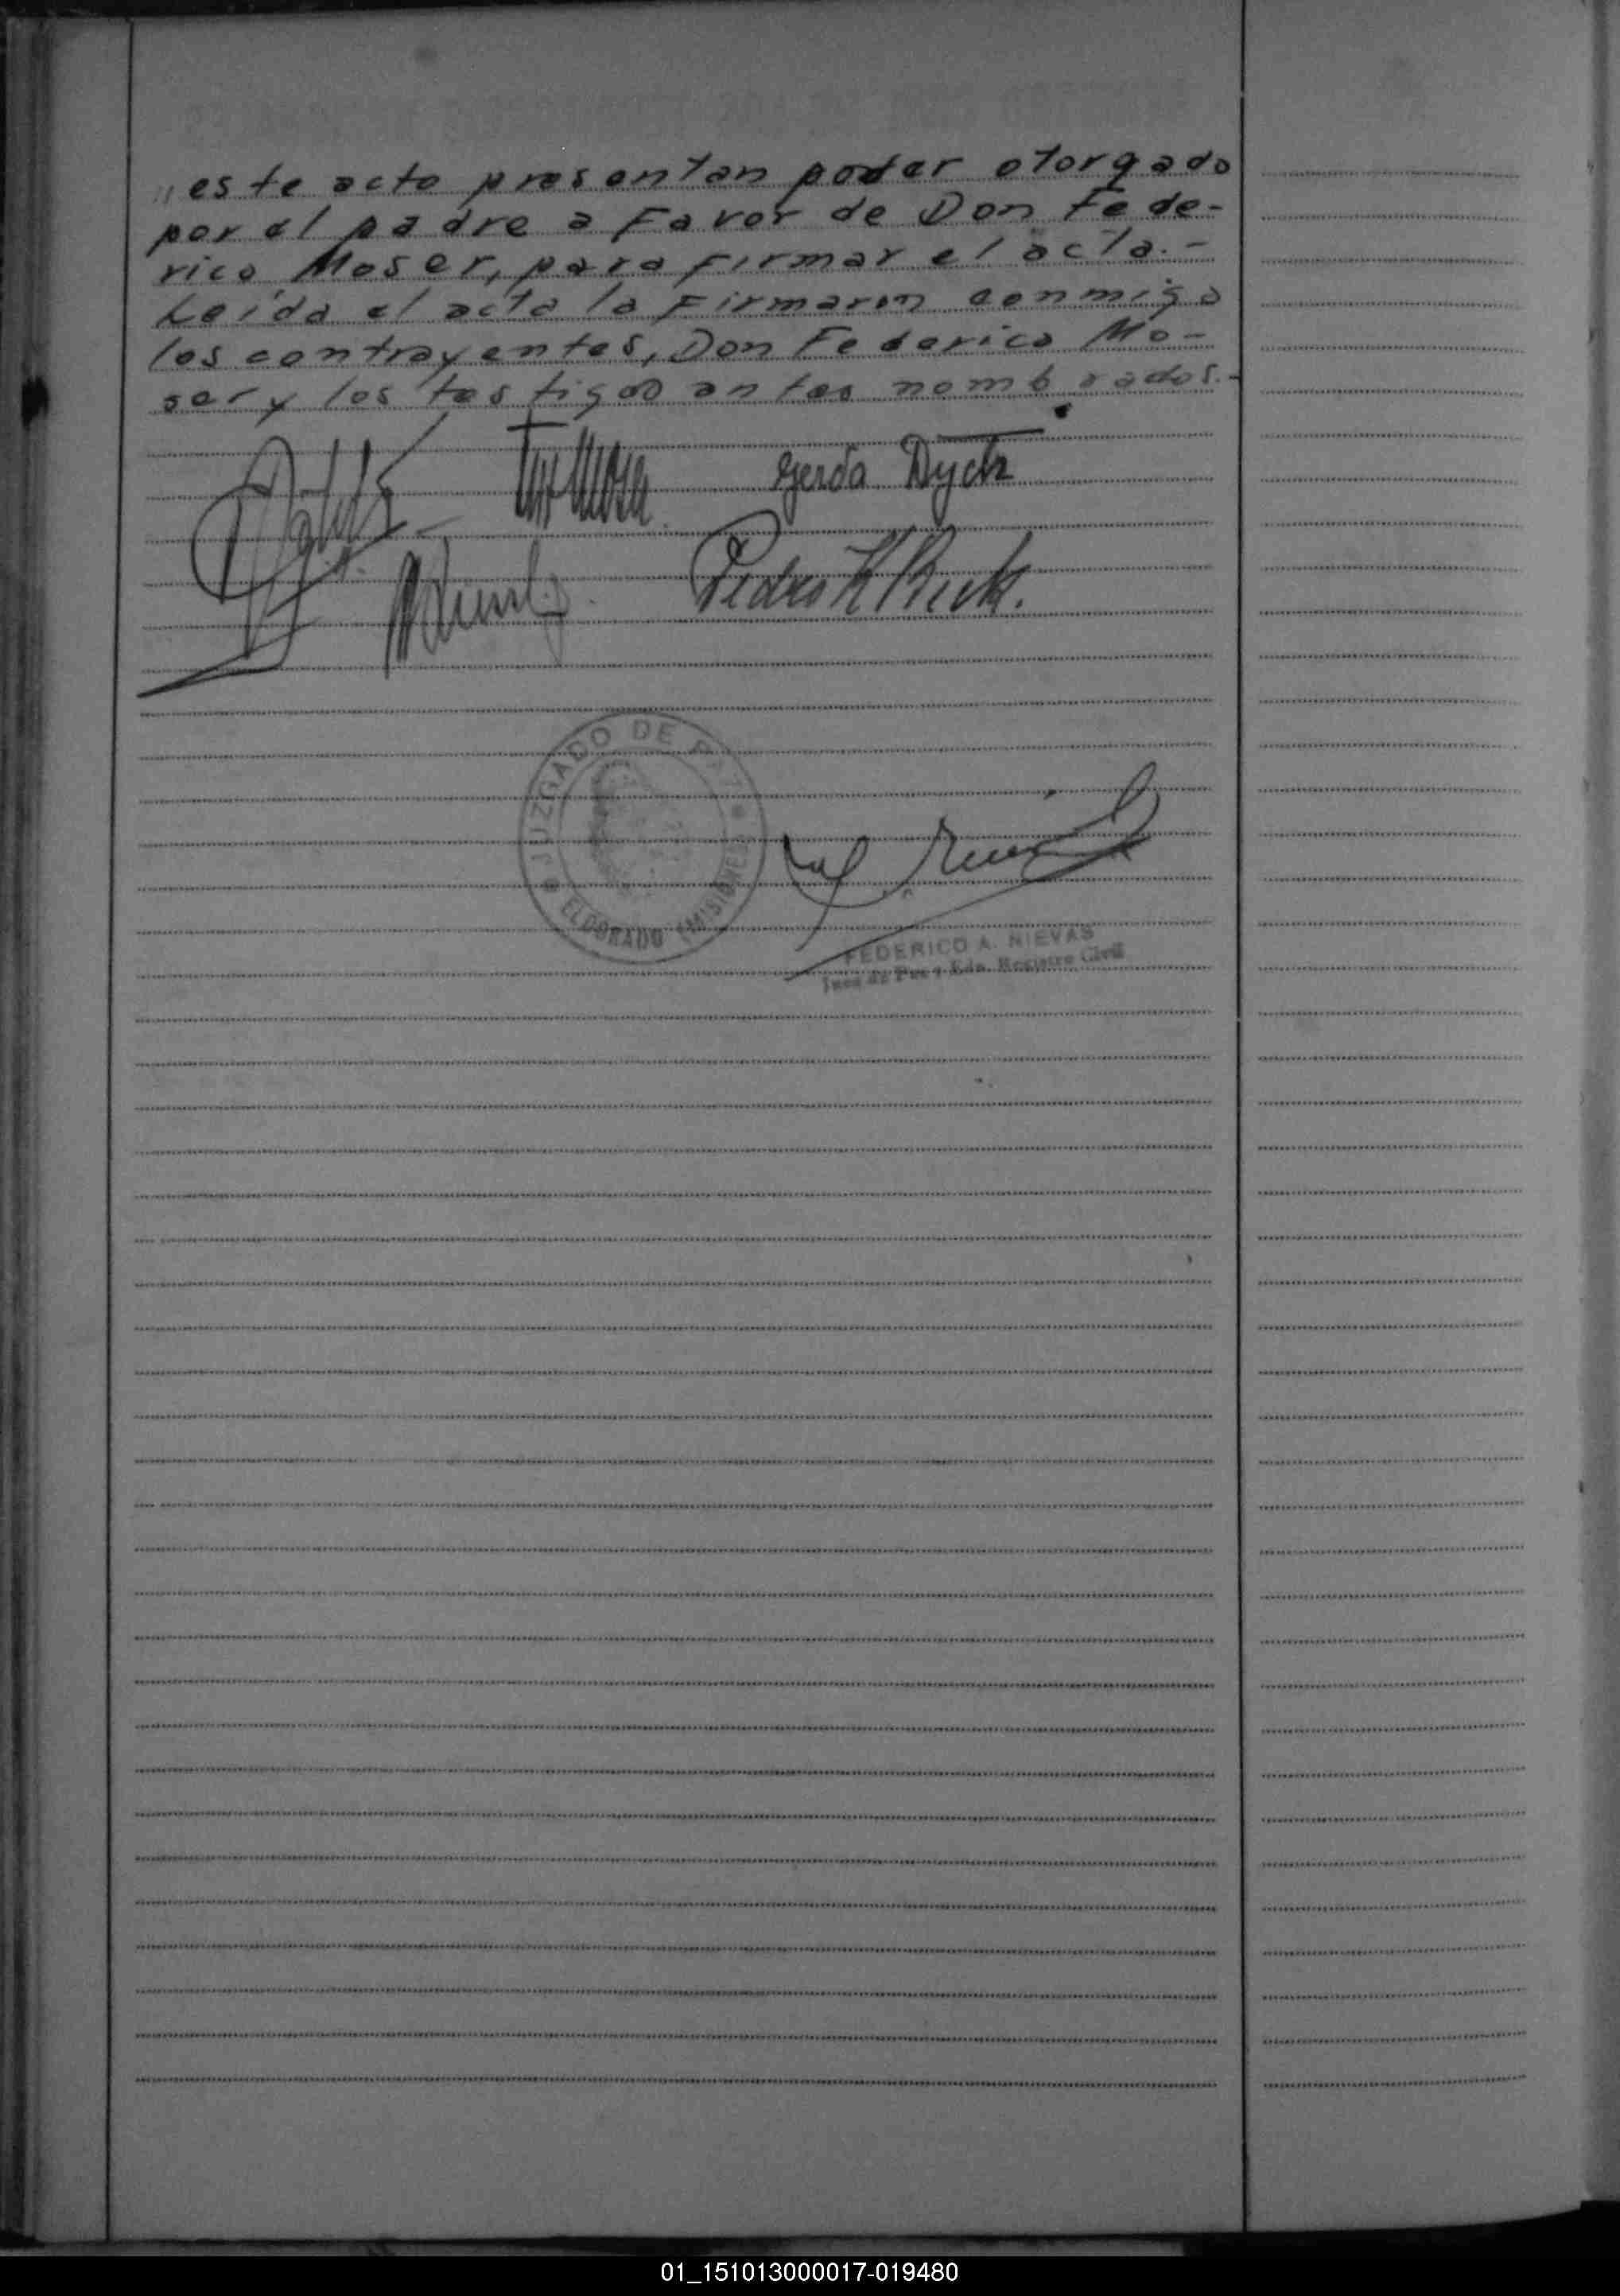 „este acto presentan poder otorgado
por el padre a Favor de Don Fede-
rico Moser, para Firmar el acta.-
Leída el acta la Firmaron conmigo
los contrayentes, Don Federico Mo-
ser y los testigos antes nombrados.-
Gerda Dyck
Pedro H
JUZGADO DE PAZ
ELDORADO (MISIONES)
FEDERICO A. NIEVAS
Juez de Paz y Edo. Registro Civil
01_151013000017-019480